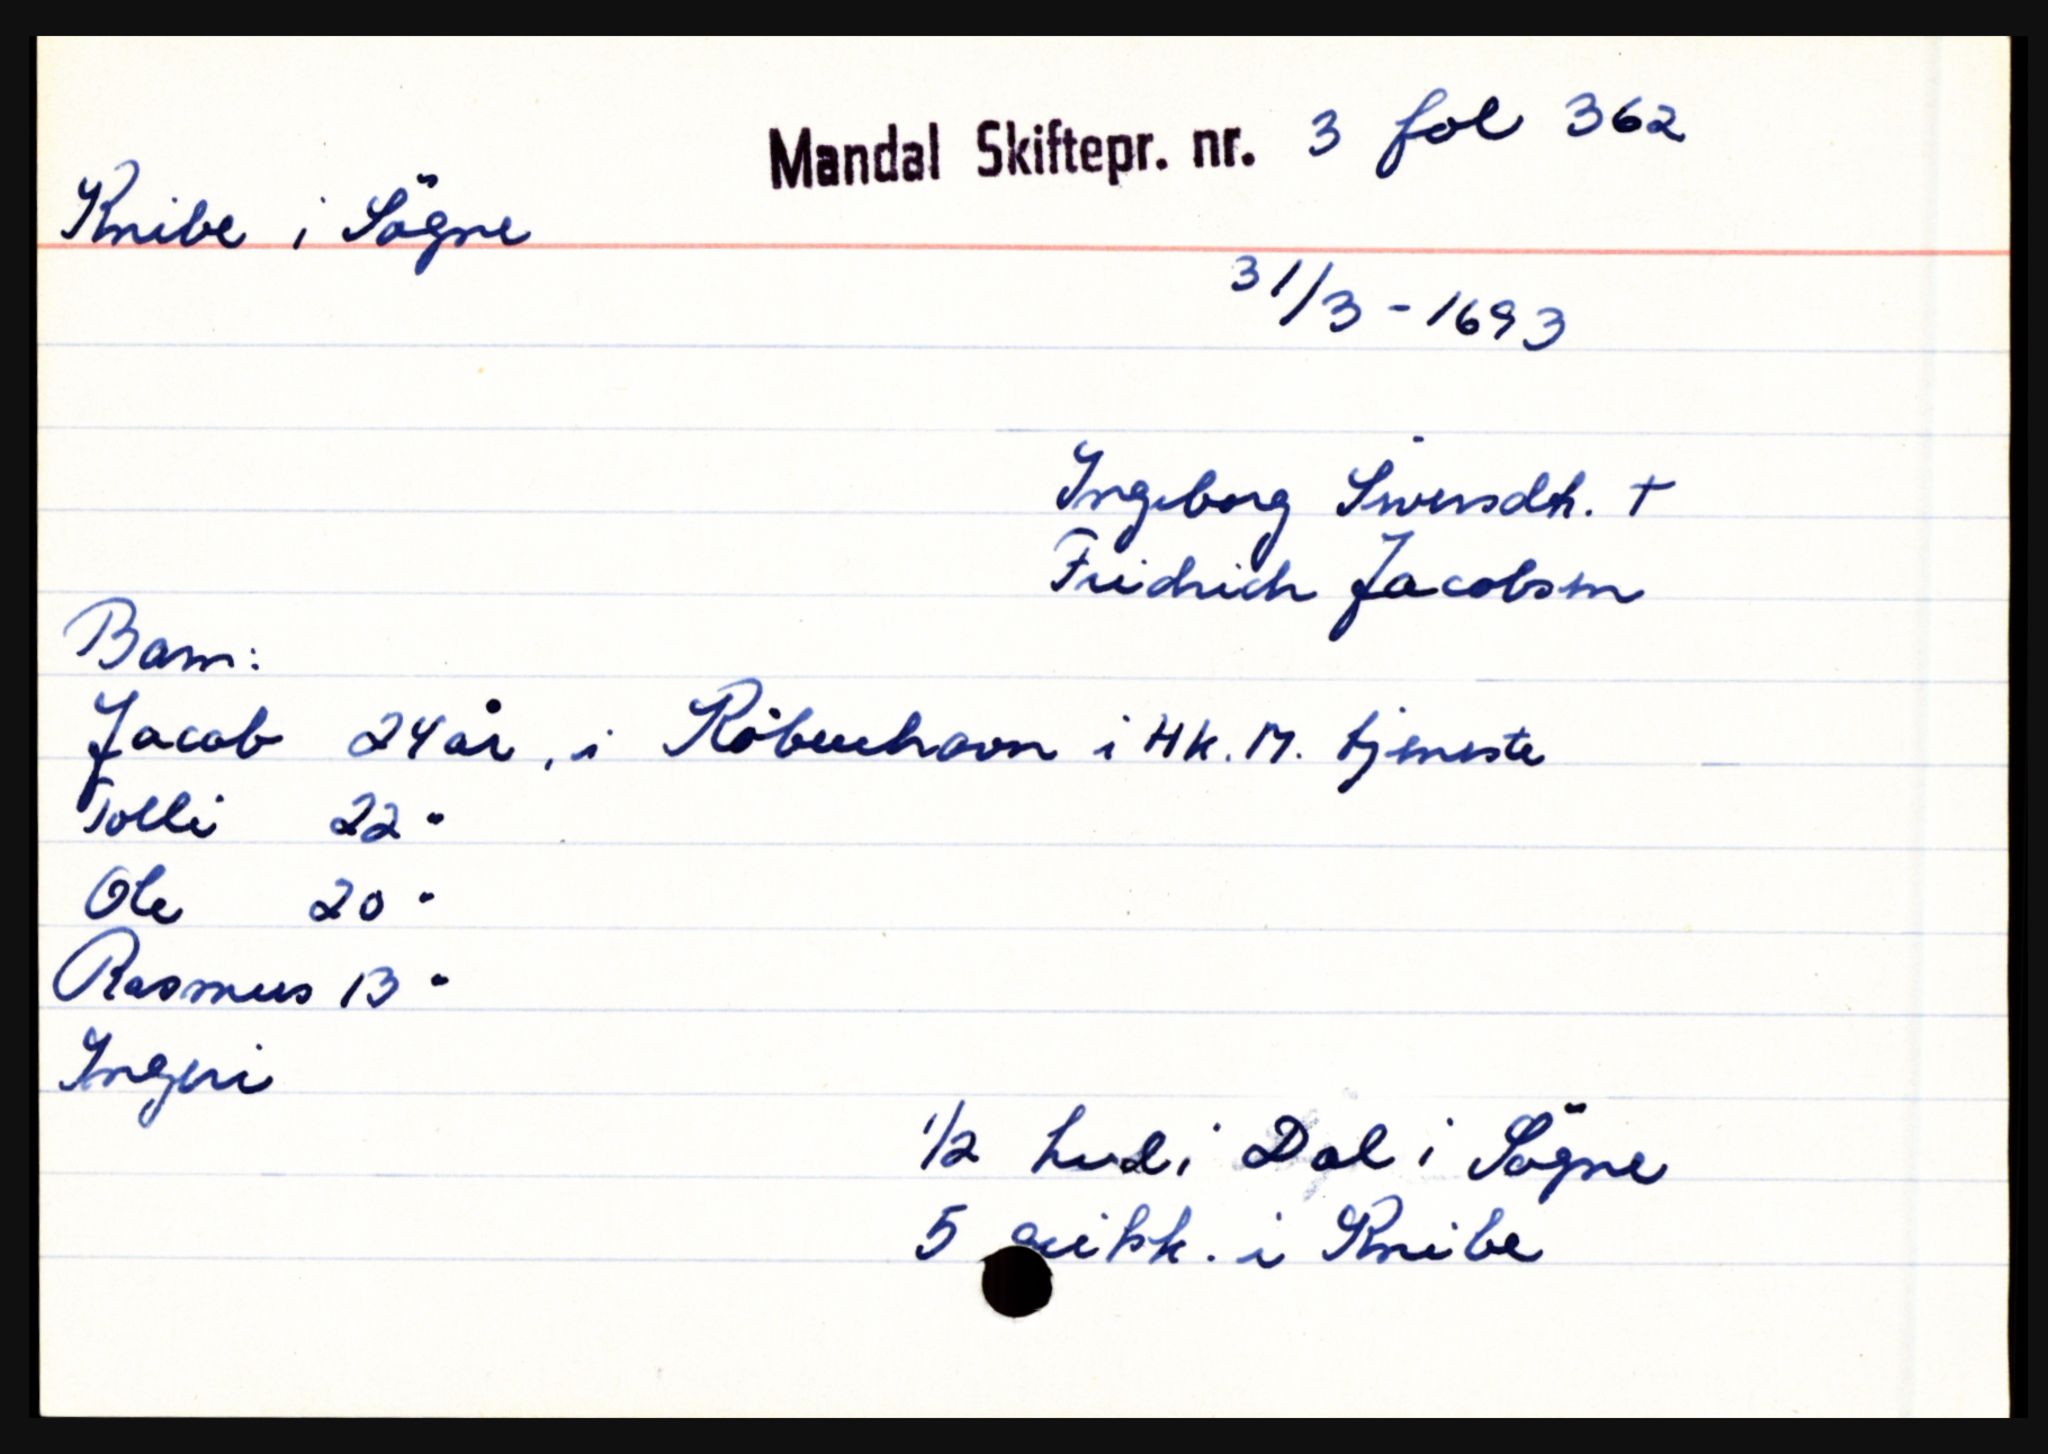 Mandal Skiftepr. nr. 3 fol 362
Knibe i Sögne
31/3 - 1693
Ingeborg Siversdtr. †
Fridrich Jacobsen
Barn:
Jacob 24 år, i Köbenhavn i H k. M. tjeneste
Tolli 22 "
Ole 20 "
Rasmus 13 "
Ingeri
1/2 hud i Dal i Sögne
5 i Knibe